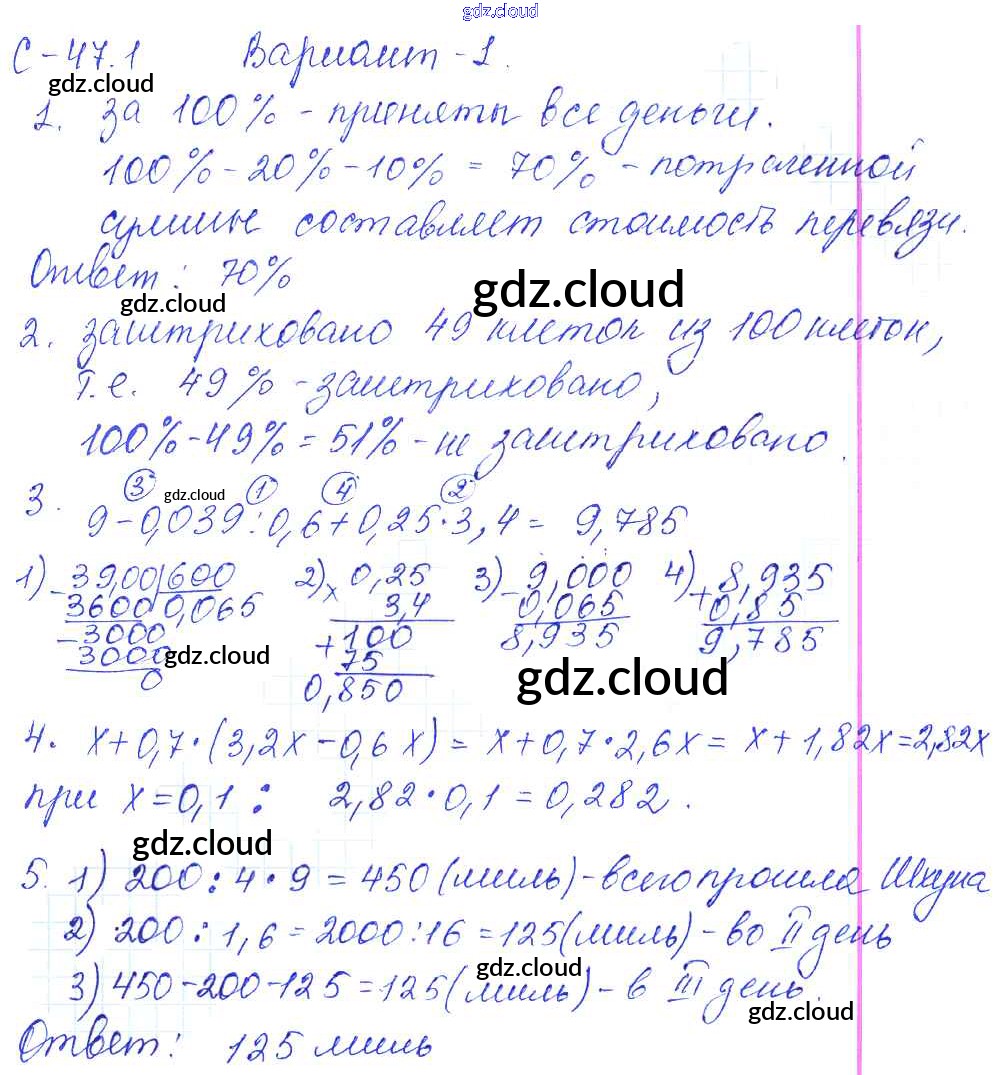 gdz.cloud
С-47.1 Вариант-1.
gdz.cloud
1. За 100% - приняты все деньги.
100% - 20% - 10% = 70% - потраченной
суммы составляет стоимость перевязи.
Ответ: 70%
gdz.cloud gdz.cloud
2. заштриховано 49 клеток из 100 клеток,
т.е. 49% - заштриховано,
100% - 49% = 51% - не заштриховано.
3 gdz.cloud 1 4 2
3. 9 - 0,039 : 0,6 + 0,25 · 3,4 = 9,785
1) - 39,00 | 600 2) x 0,25 3) - 9,000 4) + 8,935
3600 0,065 3,4 0,065 0,85
- 3000 + 100 8,935 9,785
3000 gdz.cloud 75 gdz.cloud
0 0,850
4. x + 0,7 · (3,2x - 0,6x) = x + 0,7 · 2,6x = x + 1,82x = 2,82x
при x = 0,1 : 2,82 · 0,1 = 0,282.
gdz.cloud gdz.cloud
5. 1) 200 : 4 · 9 = 450 (миль) - всего прошла Шхуна
2) 200 : 1,6 = 2000 : 16 = 125 (миль) - во II день
gdz.cloud
3) 450 - 200 - 125 = 125 (миль) - в III день.
gdz.cloud
Ответ: 125 миль